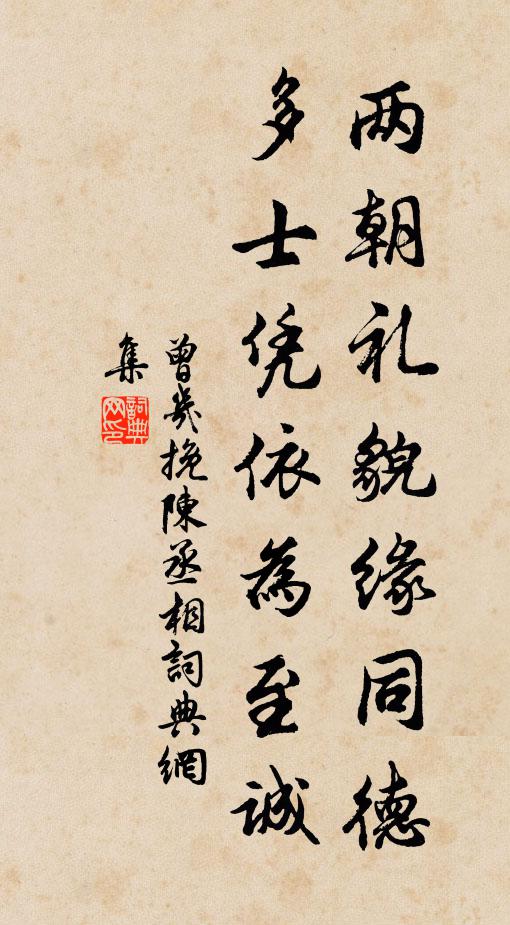 两朝礼貌缘同德
多士凭依為至诚
曾幾挽陳丞相詞典網
集
詞典網印